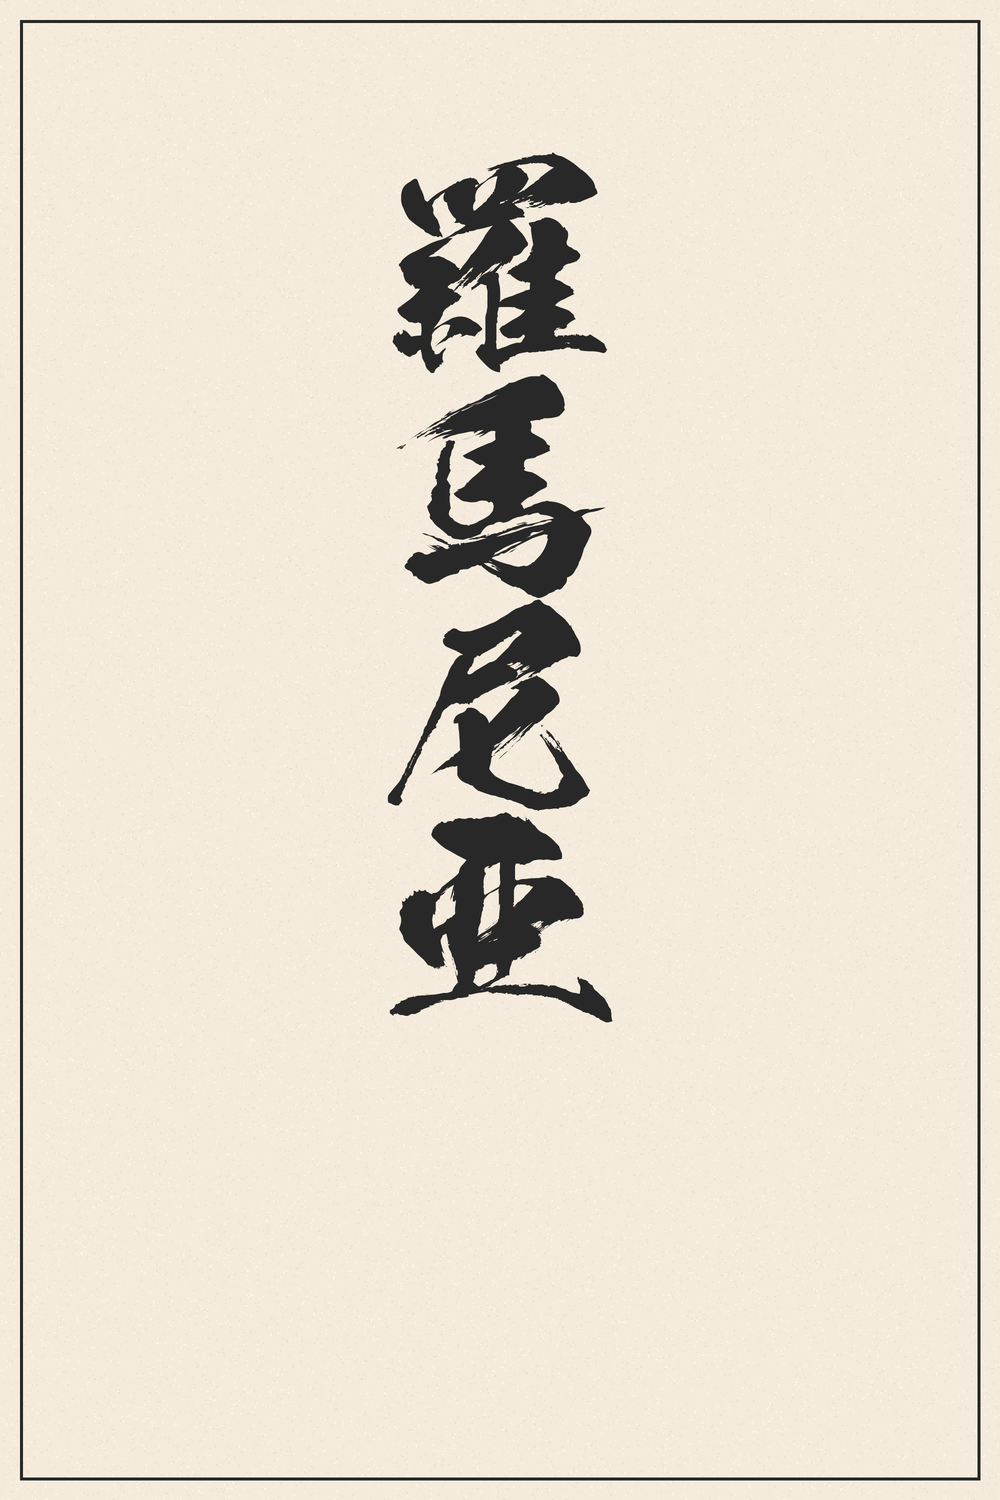 羅馬尼亜